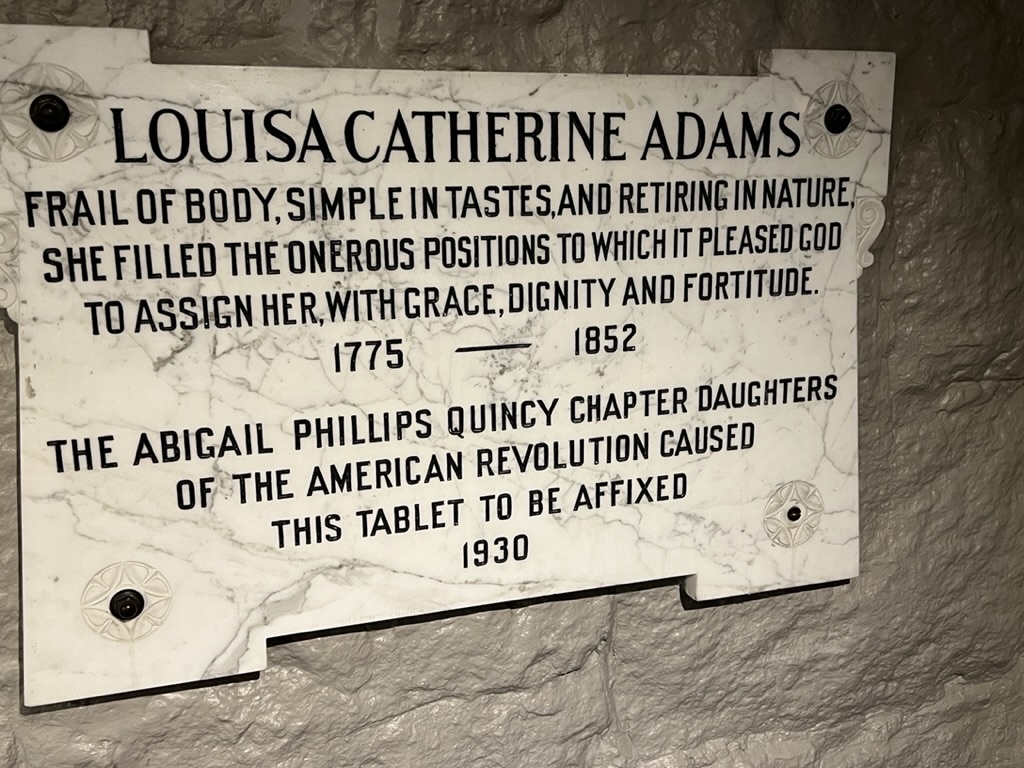 LOUISA CATHERINE ADAMS
FRAIL OF BODY, SIMPLE IN TASTES, AND RETIRING IN NATURE,
SHE FILLED THE ONEROUS POSITIONS TO WHICH IT PLEASED GOD
TO ASSIGN HER, WITH GRACE, DIGNITY AND FORTITUDE.
1775 — 1852
THE ABIGAIL PHILLIPS QUINCY CHAPTER DAUGHTERS
OF THE AMERICAN REVOLUTION CAUSED
THIS TABLET TO BE AFFIXED
1930